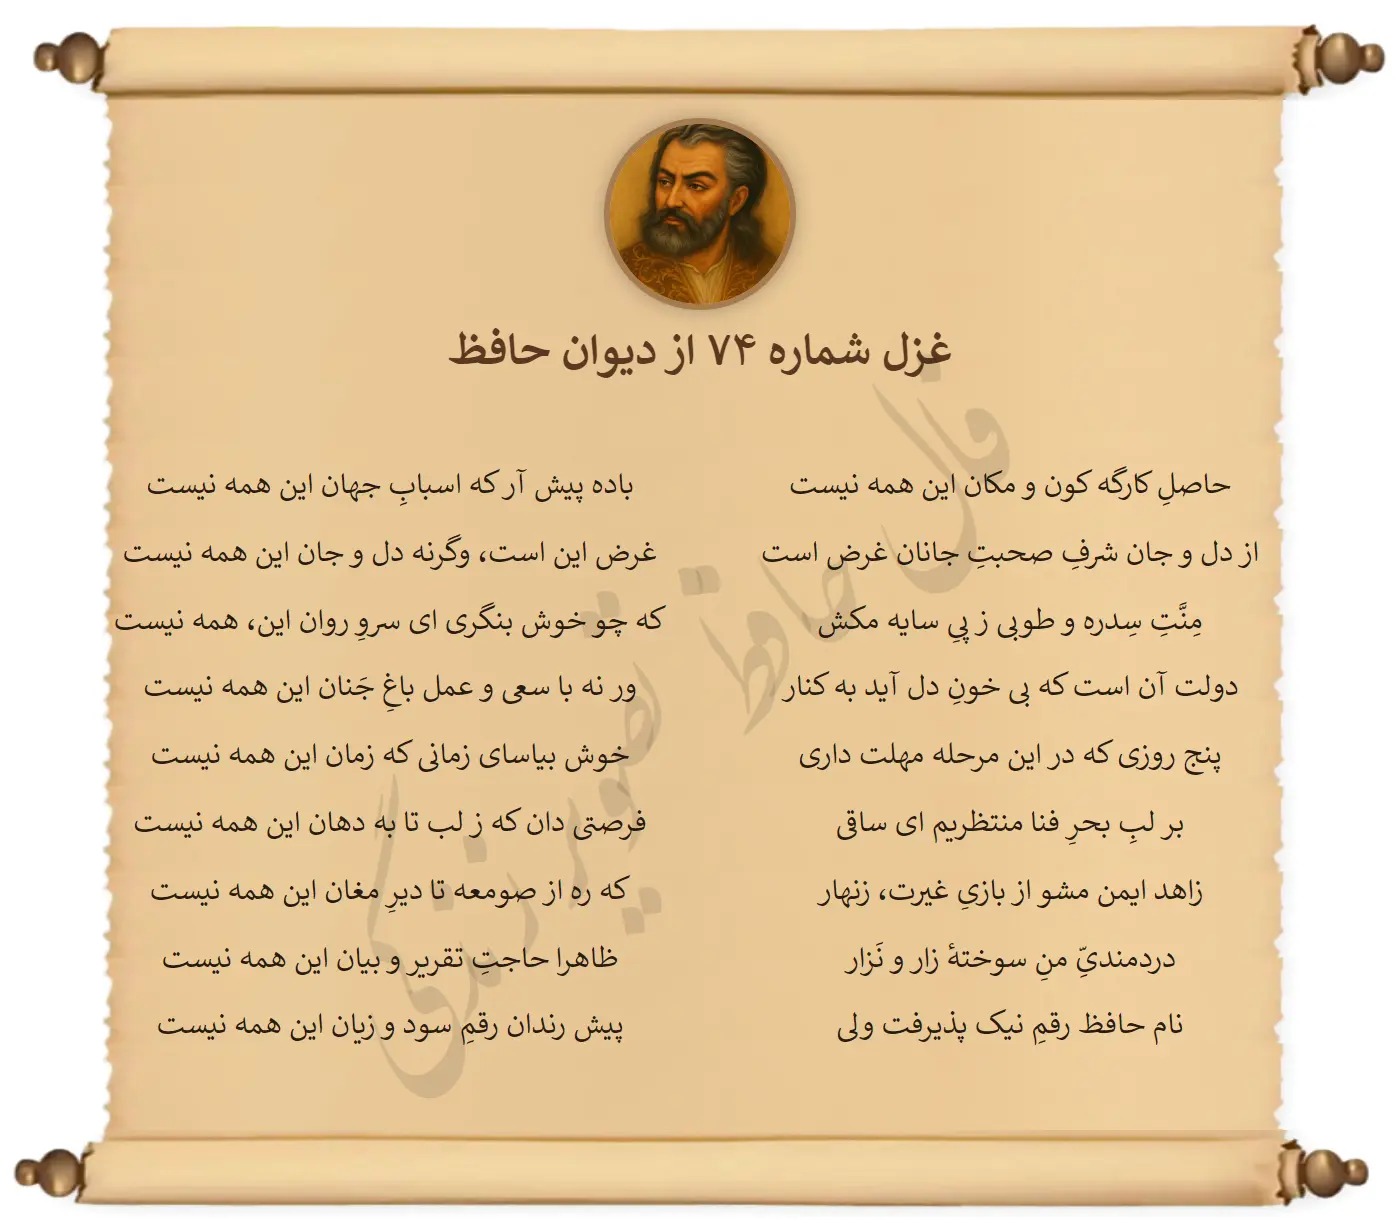 غزل شماره ۷۴ از دیوان حافظ
حاصلِ کارگه کون و مکان این همه نیست
باده پیش آر که اسبابِ جهان این همه نیست
از دل و جان شرفِ صحبتِ جانان غرض است
غرض این است، وگرنه دل و جان این همه نیست
مِنَّتِ سِدره و طوبی ز پیِ سایه مکش
که چو خوش بنگری ای سروِ روان این، همه نیست
دولت آن است که بی خونِ دل آید به کنار
ور نه با سعی و عمل باغِ جَنان این همه نیست
پنج روزی که در این مرحله مهلت داری
خوش بیاسای زمانی که زمان این همه نیست
بر لبِ بحرِ فنا منتظریم ای ساقی
فرصتی دان که ز لب تا به دهان این همه نیست
زاهد ایمن مشو از بازیِ غیرت، زنهار
که ره از صومعه تا دیرِ مغان این همه نیست
دردمندیِّ منِ سوختهٔ زار و نَزار
ظاهرا حاجتِ تقریر و بیان این همه نیست
نام حافظ رقمِ نیک پذیرفت ولی
پیش رندان رقمِ سود و زیان این همه نیست
فال حافظ تصویر زندگی